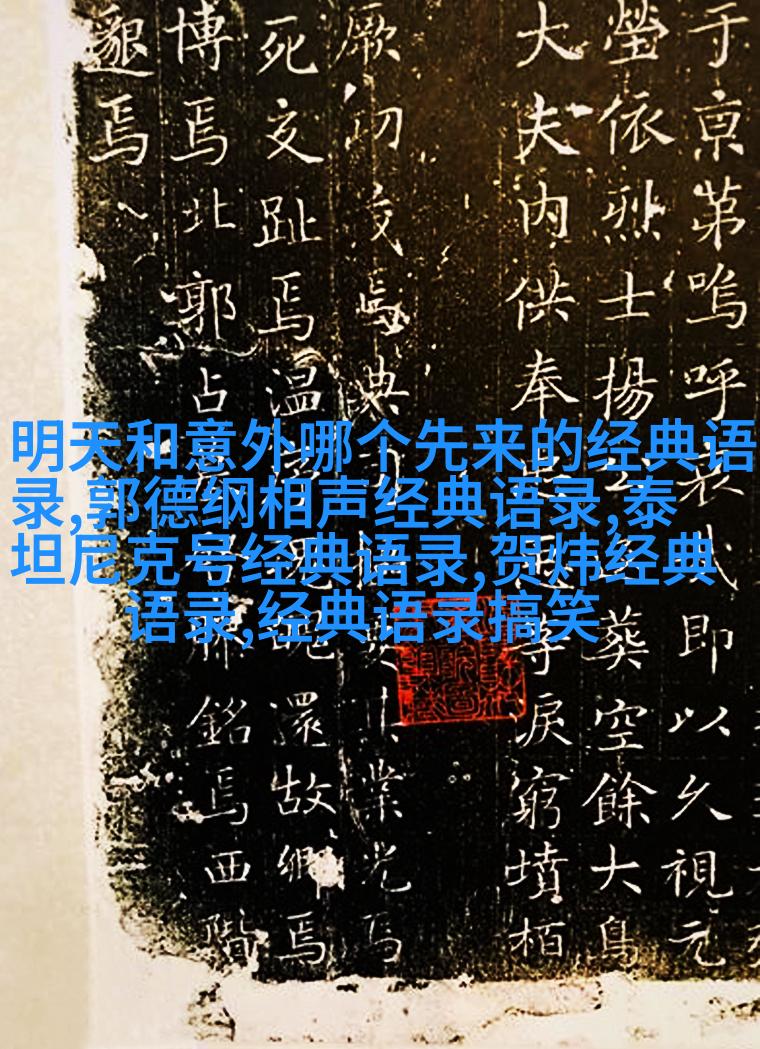 明天和意外哪个先来的经典语
录,郭德纲相声经典语录,泰
坦尼克号经典语录,贺炜经典
语录,经典语录搞笑
于京第嗚呼哀哉即以久視元
塋依烈士揚葬空餘大鳥
大夫内供奉淚窮墳栢
厥典業光焉
死交趾焉温還故鄉焉
博焉北郭占銘焉西階
邈焉